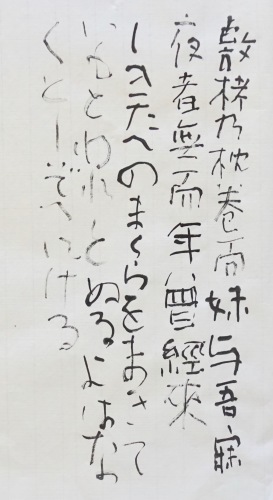 敷栲乃枕巻而妹与吾寐
夜者無而年曾經來
しきたへのまくらをまきて
いもとわれとぬるよはな
くとしぞへにける